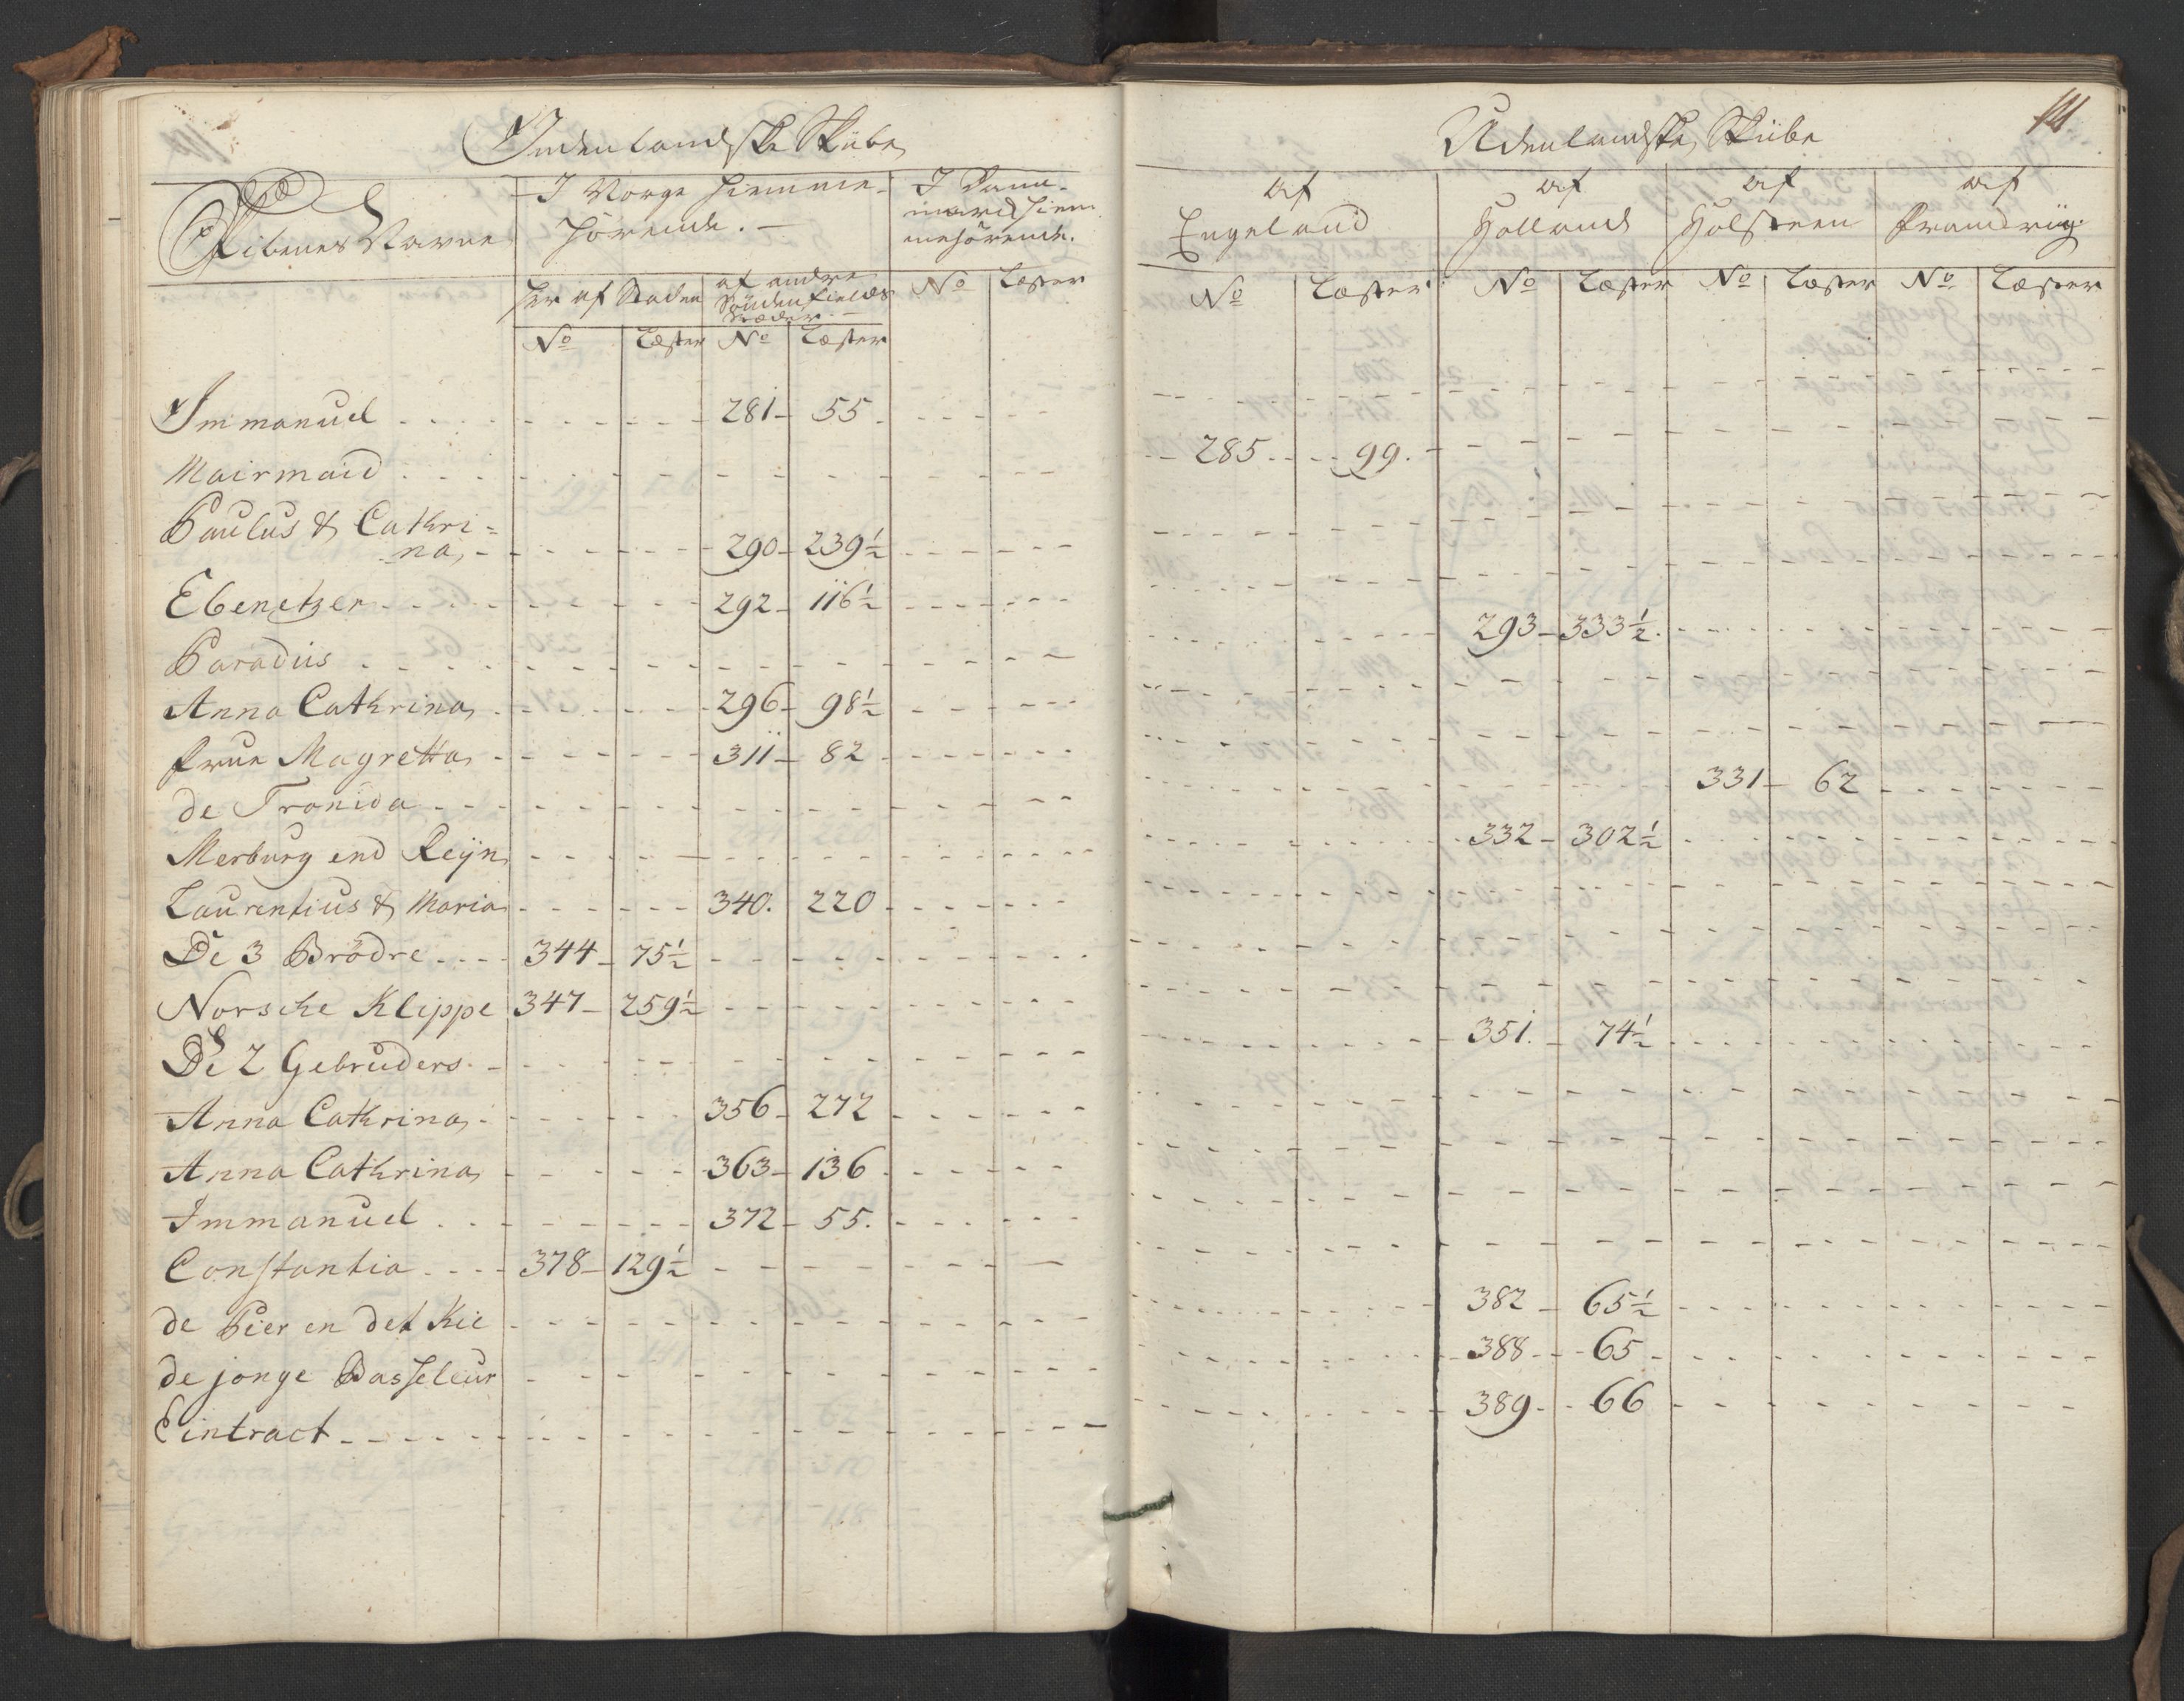 Indenlandske Skibe
Skibenes Navne
I Norge hiemme-
hörende. -
I Dann-
march hiem
mehörende.
her af Staden
af andre
Söndenfields
Stæder. -
No Læster No Læster No Læster
Immanuel 281 - 55
Mairmaid
Paulus & Cathri=
na, - 290 - 239½
Ebenetzer 292 - 116½
Paradiis
Anna Cathrina 296 - 98½
Frue Magretta 311 - 82
de Tronida
Merburg end Reijn
Laurentius & Maria 340. 220
De 3 Brödre 344 - 75½
Norsche Klippe 347 - 259½
De 2 Gebruders
Anna Cathrina 356 - 272
Anna Cathrina 363 - 136
Immanuel 372 - 55.
Constantia 378 - 129½
de Pier en det Kie
de jonge Basseleur
Eintract
Udenlandske Skibe
111
af
Engeland
af
Holland
af
Holsteen
af
Frandrig
No Læster No Læster No Læster No Læster
285 99.
293 - 333½.
331 - 62
332 - 302½
351. 74½
382 - 65½
388 - 65
389 - 66